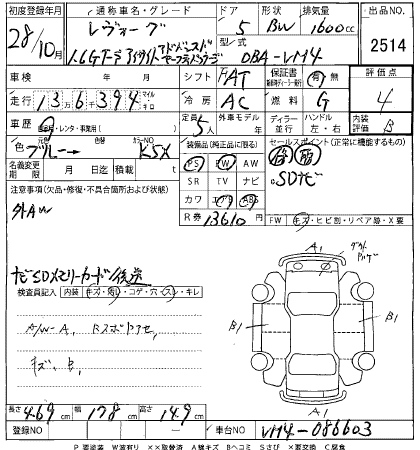 初度登録年月 通称車名・グレード ドア 形状 排気量 出品NO.
28/10月 レヴォーグ 5 BW 1600cc 2514
1.6GT-S アイサイト アドバンスド セーフティパッケージ 型式 DBA-VM4
車検 年 月 シフト FAT 保証書 有・無 評価点
走行 136千394 マイル キロ 冷房 AC 燃料 G 4
車歴 自家用・レンタ・事業用( ) 定員 5人 外車モデル 年 ディーラー 並行 ハンドル 左・右 内装 B
色 元色 ブルー→ 色替 カラーNO K5X 装備品(純正品に限る) セールスポイント(正常に機能するもの)
名義変更期限 月 日迄 積載 t PS PW AW
注意事項(欠品・修復・不具合箇所および状態) SR TV ナビ SDナビ
外AW カワ エアB ABS
R券 13610 FW キズ・ヒビ割・リペア跡・X要
ナビSDメモリーカード後送
検査員記入 内装 キズ・汚レ・コゲ・穴・スレ・キレ
A/W-A、
キズ、B、
A1
B1 B1
A1
長さ 469cm 幅 178cm 高さ 149cm
登録NO 車台NO VM4-086603
P 要塗装 W波有り ××取替済 A線キズ Bヘコミ Sさび ×要交換 C腐食